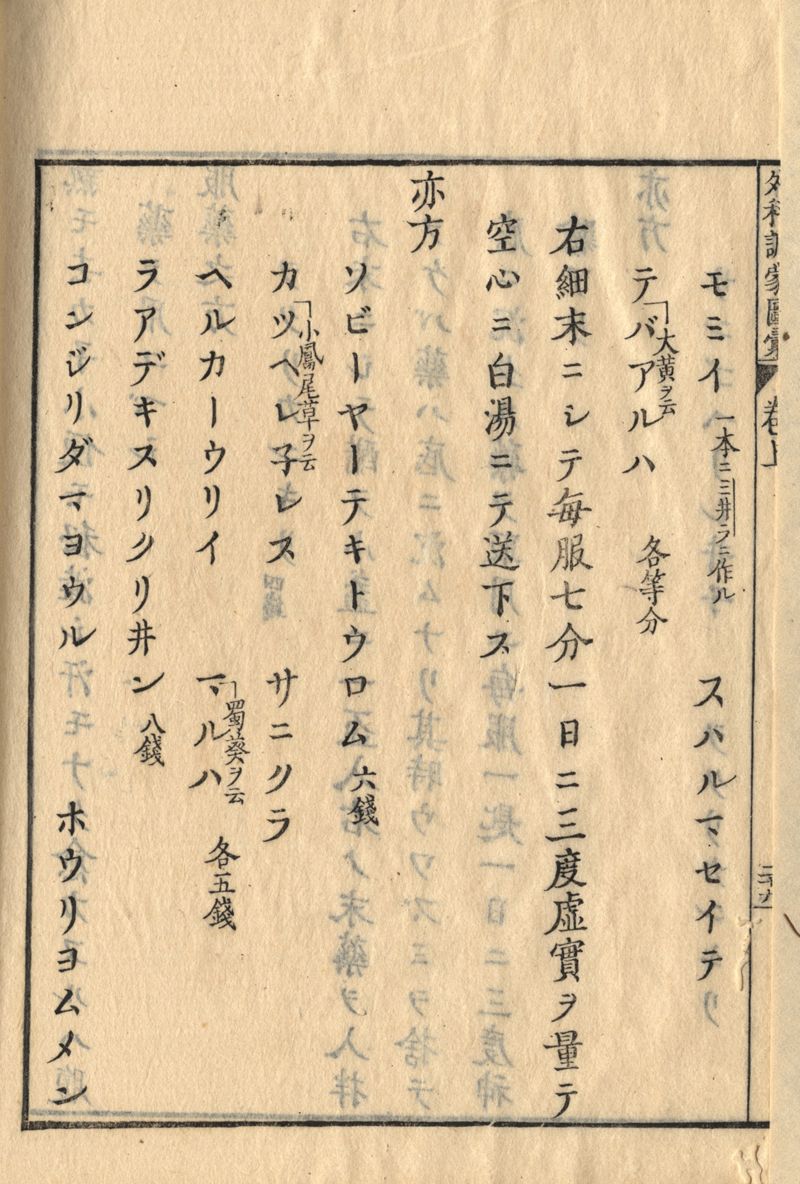 モミイ 一本ニ三井ラニ作ル スハルマセイテリ
テバアルハ 大黄ヲ云 各等分
右細末ニシテ毎服七分一日ニ三度虚實ヲ量テ
空心ニ白湯ニテ送下ス
亦方
ソビーヤーテキトウロム 六錢
カツヘレ子レス 小鳳尾草ヲ云 サニクラ
ヘルカーウリイ マルハ 蜀葵ヲ云 各五錢
ラアデキスリクリ井ン 八錢
コンジリダマヨウル ホウリヨムメン